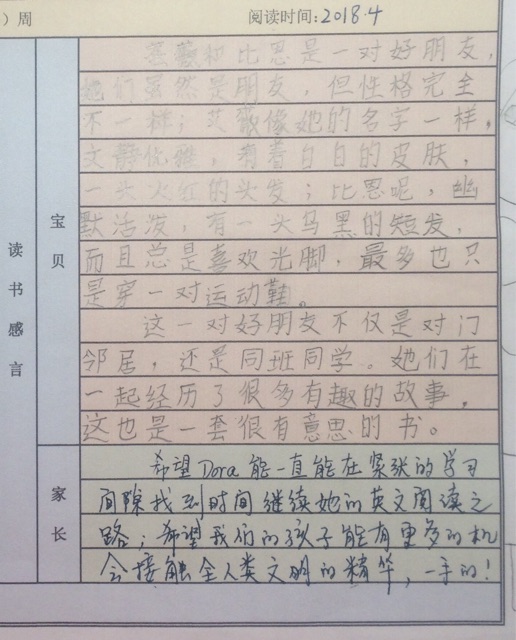 ）周 阅读时间:2018.4
艾薇和比恩是一对好朋友，
她们虽然是朋友，但性格完全
不一样；艾薇像她的名字一样，
文静优雅，有着白白的皮肤，
一头火红的头发；比恩呢，幽
默活泼，有一头乌黑的短发，
而且总是喜欢光脚，最多也只
是穿一对运动鞋。
这一对好朋友不仅是对门
邻居，还是同班同学。她们在
一起经历了很多有趣的故事，
这也是一套很有意思的书。
读书感言
宝贝
家长
希望Dora能一直能在紧张的学习
间隙找到时间继续她的英文阅读之
路；希望我们的孩子能有更多的机
会接触全人类文明的精华，一手的！